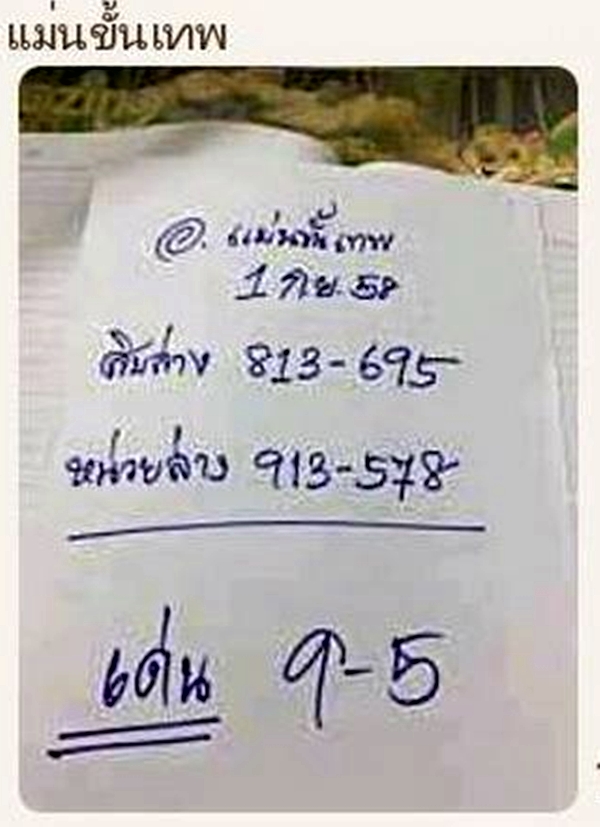 แม่นขั้นเทพ
อ. แม่นขั้นเทพ
1 กย. 58
สิบล่าง 813-695
หน่วยล่าง 913-578
เด่น 9-5